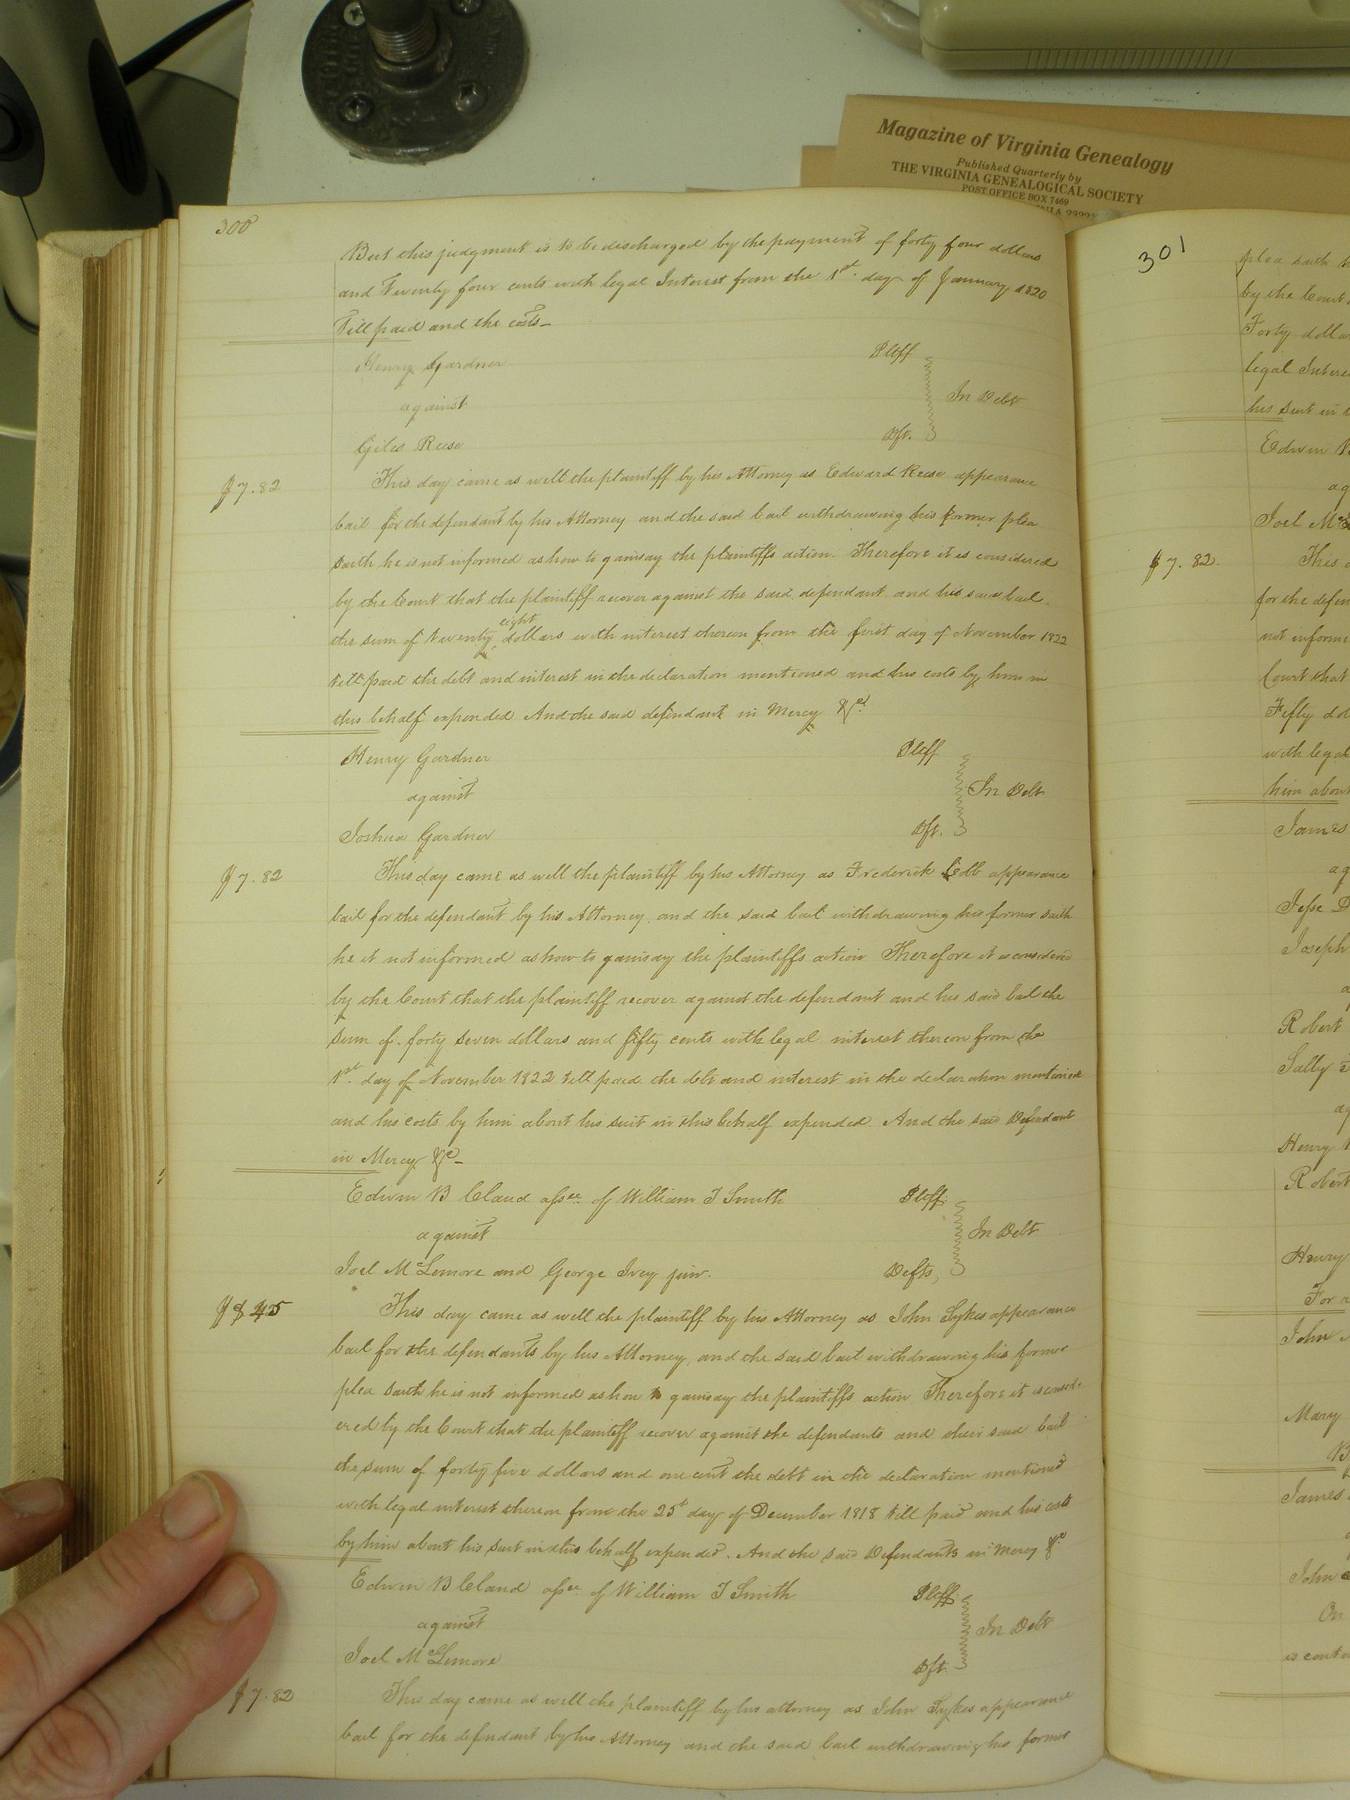 Magazine of Virginia Genealogy
Published Quarterly by
THE VIRGINIA GENEALOGICAL SOCIETY
POST OFFICE BOX 7469
300
But this judgment is to be discharged by the payment of forty four dollars
and Twenty four cents with legal Interest from the 1st. day of January 1820
Till paid and the costs_
Henry Gardner Pltff
against In Debt
Giles Reese Dft.
$7.82 This day came as well the plaintiff by his Attorney as Edward Reese appearance
bail for the defendant by his Attorney and the said bail withdrawing his former plea
saith he is not informed as how to gainsay the plaintiffs action. Therefore it is considered
by the Court that the plaintiff recover against the said defendant and his said bail
the sum of Twenty eight dollars with interest thereon from the first day of November 1822
till paid the debt and interest in the declaration mentioned and his costs by him in
this behalf expended And the said defendant in Mercy &c.
Henry Gardner Pltff
against In Debt
Joshua Gardner Dft.
$7.82 This day came as well the plaintiff by his Attorney as Frederick appearance
bail for the defendant by his Attorney, and the said bail withdrawing his former saith
he is not informed as how to gainsay the plaintiffs action Therefore it is considered
by the Court that the plaintiff recover against the defendant and his said bail the
sum of forty seven dollars and fifty cents with legal interest thereon from the
1st. day of November 1822 till paid the debt and interest in the declaration mentioned
and his costs by him about his suit in this behalf expended. And the said Defendant
in Mercy &c_
Edwin B Claud assee. of William T Smith Pltff.
against In Debt
Joel McLemore and George Ivey junr. Defts,
This day came as well the plaintiff by his Attorney as John Sykes appearance
bail for the defendants by his Attorney, and the said bail withdrawing his former
plea saith he is not informed as how to gainsay the plaintiffs action Therefore it is consid-
ered by the Court that the plaintiff recover against the defendants and their said bail
the sum of forty five dollars and one cent the debt in the declaration mentioned
with legal interest thereon from the 25th day of December 1818 till paid and his costs
by him about his suit in this behalf expended. And the said Defendants in Mercy &c
Edwin B Claud assee. of William T Smith Pltff.
against In Debt
Joel McLemore Dft.
$7.82 This day came as well the plaintiff by his attorney as John Sykes appearance
bail for the defendant by his Attorney and the said bail withdrawing his former
301
plea saith
by the Court
Forty
legal
his suit in
Edwin
Joel
$7.82. This
for the
not
Court that
Fifty
with legal
him about
James
Jesse
Joseph
Robert
Sally
Henry
Robert
Henry
For
John
Mary
James
John
On
is